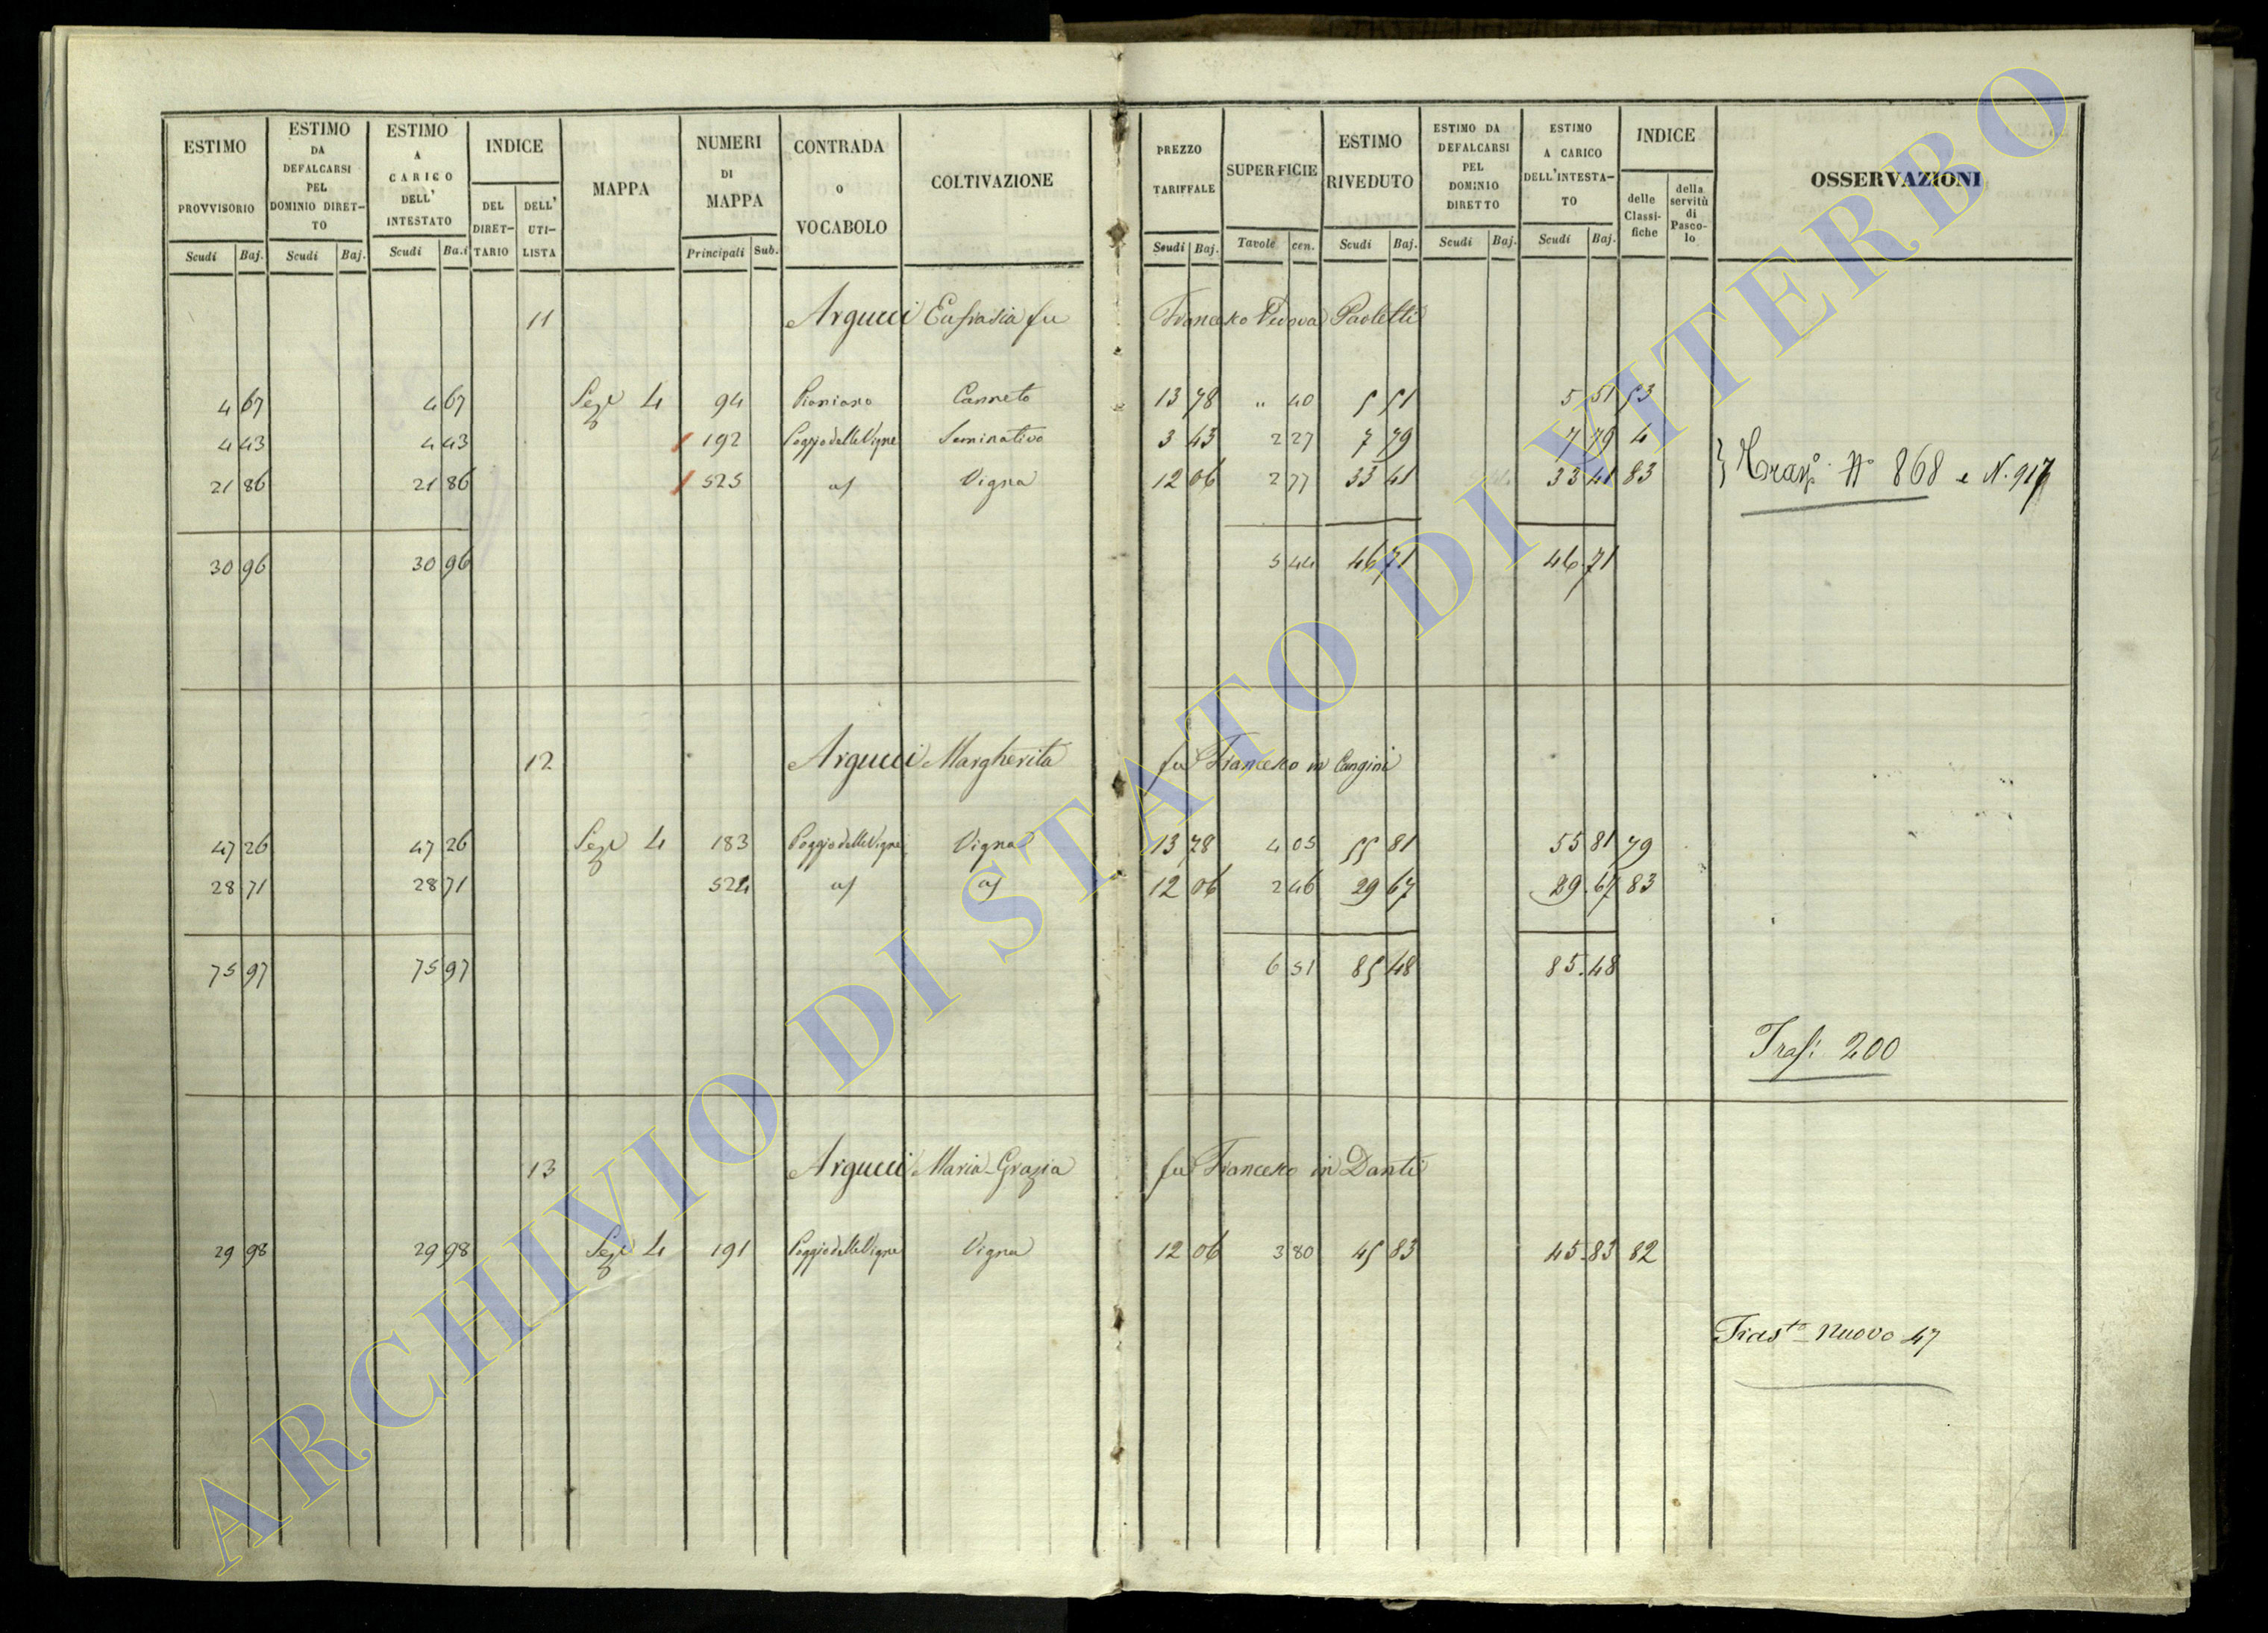 ESTIMO PROVVISORIO
Scudi Baj.
ESTIMO DA DEFALCARSI PEL DOMINIO DIRET-TO
Scudi Baj.
ESTIMO A CARICO DELL' INTESTATO
Scudi Ba.i
INDICE
DEL DIRET-TARIO
DELL' UTI-LISTA
MAPPA
NUMERI DI MAPPA
Principali Sub.
CONTRADA O VOCABOLO
COLTIVAZIONE
PREZZO TARIFFALE
Scudi Baj.
SUPERFICIE
Tavole cen.
ESTIMO RIVEDUTO
Scudi Baj.
ESTIMO DA DEFALCARSI PEL DOMINIO DIRETTO
Scudi Baj.
ESTIMO A CARICO DELL'INTESTA-TO
Scudi Baj.
INDICE
delle Classi-fiche
della servitù di Pasco-lo
OSSERVAZIONI
11 Argucci Eufrasia fu Francesco Vedova Paoletti
4 67 4 67 Sez 4 94 Canneto 13 78 " 40 5 51 5 51 53
4 43 4 43 192 Poggio delle Vigne Seminativo 3 43 2 27 7 79 7 79 4
21 86 21 86 525 Vigna 12 06 2 77 33 41 33 41 83
} N° 868 e N. 917
30 96 30 96 5 44 46 71 46.71
12 Argucci Margherita fu Francesco in Cangini
47 26 47 26 Sez 4 183 Poggio delle Vigne Vigna 13 78 4 05 55 81 55 81 79
28 71 28 71 524 12 06 2 46 29 67 29.67 83
75 97 75 97 6 51 85 48 85.48
Tras: 200
13 Argucci Maria-Grazia fu Francesco in Danti
29 98 29 98 Sez 4 191 Poggio delle Vigne Vigna 12 06 3 80 45 83 45.83 82
Trasto nuovo 47
ARCHIVIO DI STATO DI VITERBO